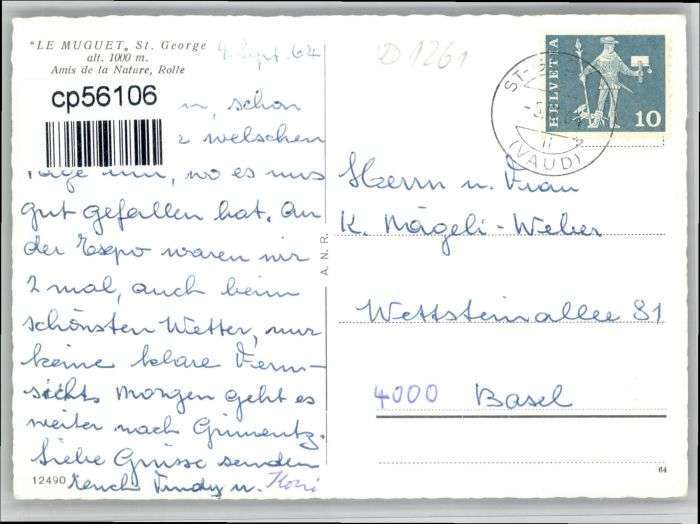 "LE MUGUET" St. George
alt. 1000 m.
Amis de la Nature, Rolle
4. Sept. 64
D 1261
cp56106
schon
welschen
Tage wo es uns
gut gefallen hat. An
der Expo waren wir
2 mal, auch beim
schönsten Wetter, nur
keine klare Fern-
sicht. Morgen geht es
weiter nach Grimentz.
Liebe Grüsse senden
Euch Trudy u. Koni
12490
A. N. R.
HELVETIA
10
ST-
(VAUD)
Herrn u. Frau
K. Nägeli-Weber
Wettsteinallee 81
4000 Basel
64